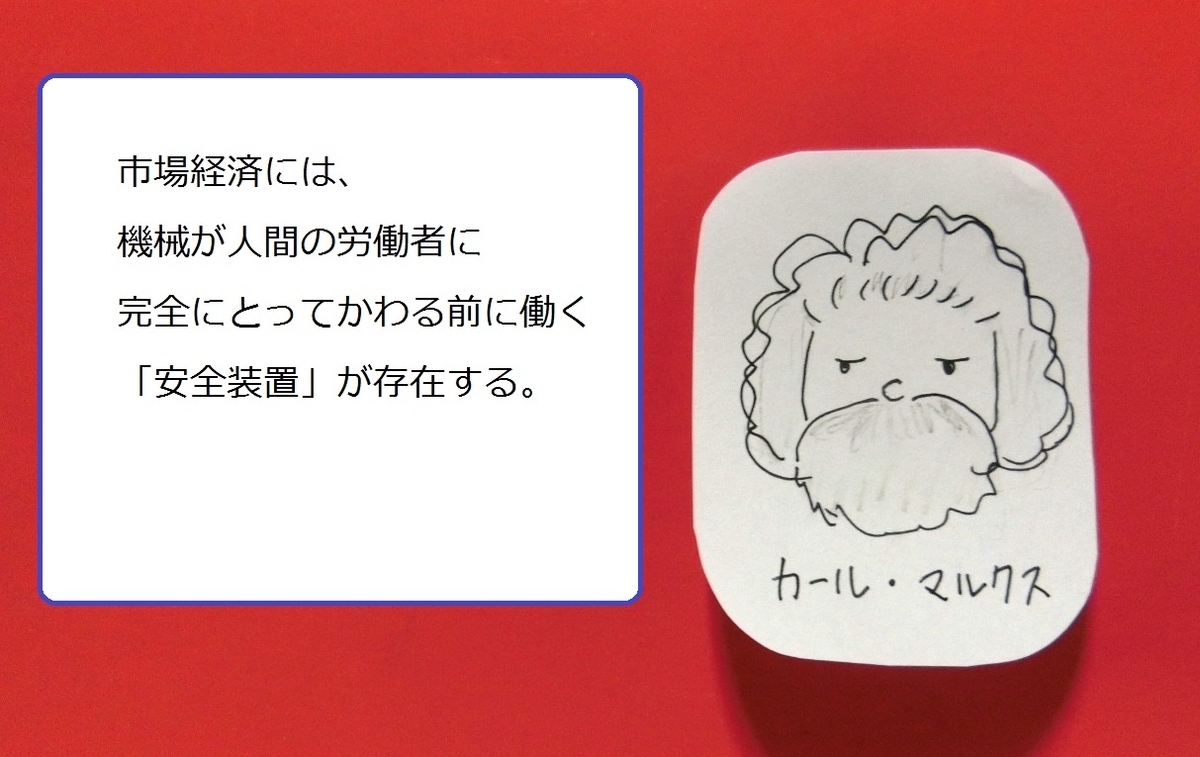 市場経済には、
機械が人間の労働者に
完全にとってかわる前に働く
「安全装置」が存在する。
カール・マルクス